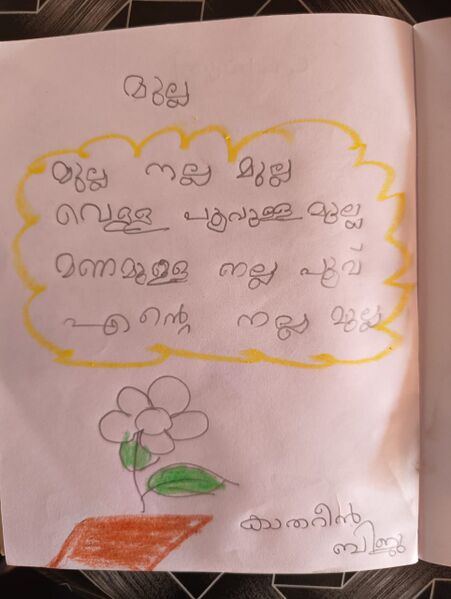 മുല്ല
മുല്ല നല്ല മുല്ല
വെള്ള പൂവുള്ള മുല്ല
മണമുള്ള നല്ല പൂവ്
എന്റെ നല്ല മുല്ല
കാതറീൻ
ബിജു